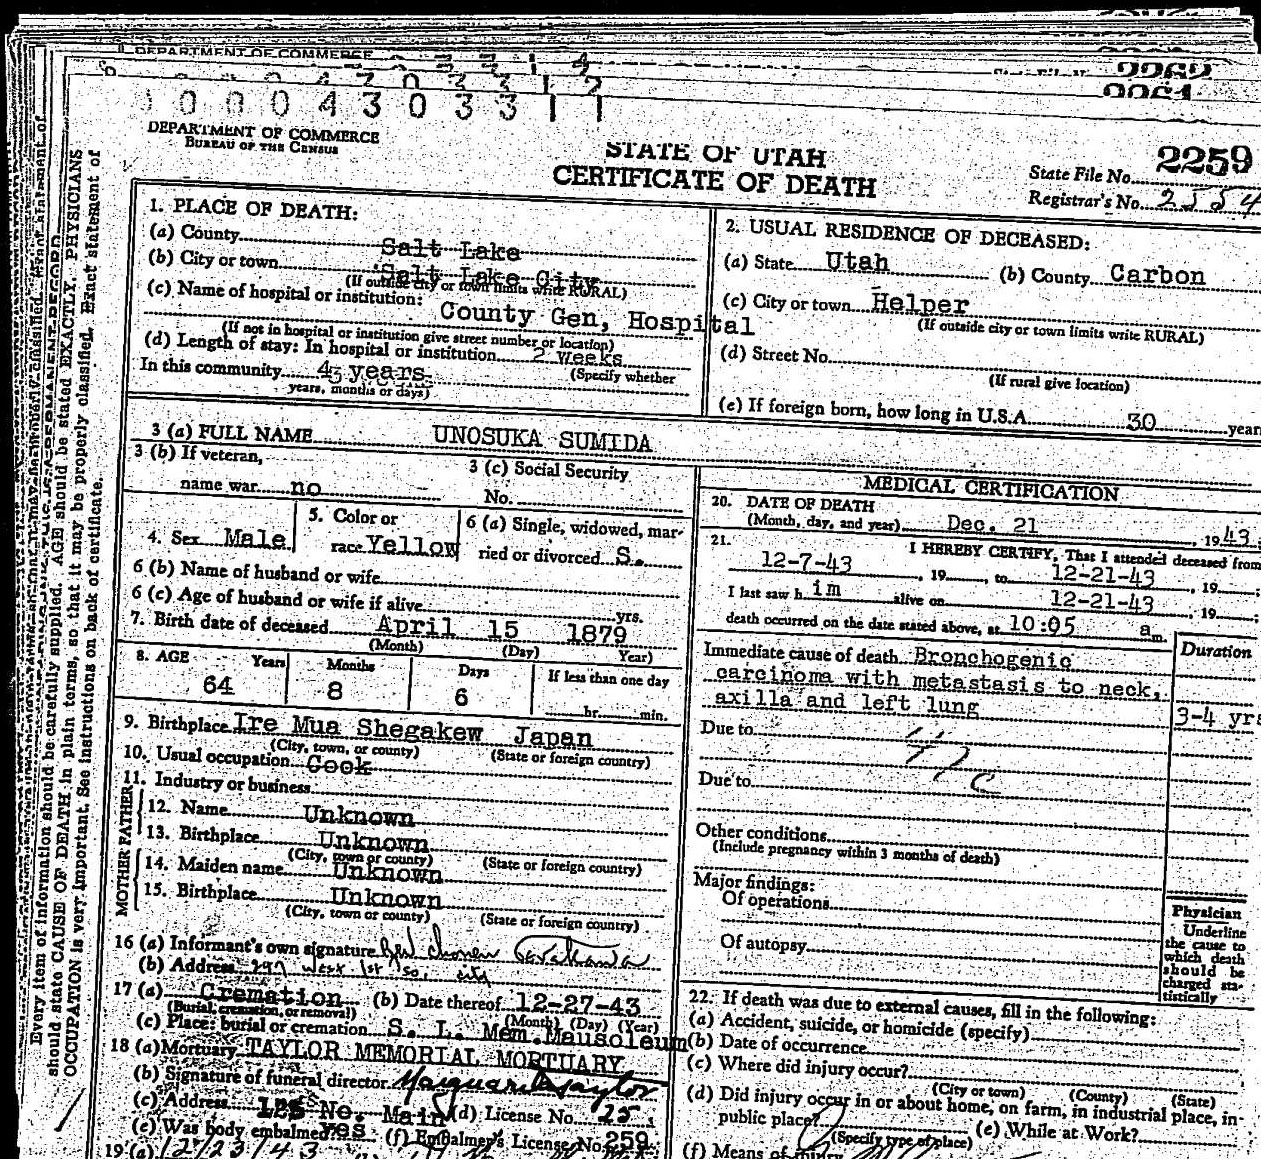 DEPARTMENT OF COMMERCE
2262
2261
0 0 0 0 4 3 0 3 3 1 1
DEPARTMENT OF COMMERCE
BUREAU OF THE CENSUS
STATE OF UTAH
CERTIFICATE OF DEATH
State File No. 2259
Registrar's No. 2554
1. PLACE OF DEATH:
(a) County Salt Lake
(b) City or town Salt Lake City
(If outside city or town limits write RURAL)
(c) Name of hospital or institution:
County Gen, Hospital
(If not in hospital or institution give street number or location)
(d) Length of stay: In hospital or institution 2 weeks
(Specify whether
In this community 43 years
years, months or days)
2. USUAL RESIDENCE OF DECEASED:
(a) State Utah (b) County Carbon
(c) City or town Helper
(If outside city or town limits write RURAL)
(d) Street No.
(If rural give location)
(e) If foreign born, how long in U.S.A. 30 year
3 (a) FULL NAME UNOSUKA SUMIDA
3 (b) If veteran,
name war no
3 (c) Social Security
No.
4. Sex Male
5. Color or
race Yellow
6 (a) Single, widowed, mar-
ried or divorced S.
6 (b) Name of husband or wife
6 (c) Age of husband or wife if alive yrs.
7. Birth date of deceased April 15 1879
(Month) (Day) Year)
8. AGE Years Months Days If less than one day
64 8 6 hr. min.
9. Birthplace Ire Mua Shegakew Japan
(City, town, or county) (State or foreign country)
10. Usual occupation Cook
11. Industry or business
FATHER
12. Name Unknown
13. Birthplace Unknown
(City, town or county) (State or foreign country)
MOTHER
14. Maiden name Unknown
15. Birthplace Unknown
(City, town or county) (State or foreign country)
16 (a) Informant's own signature
(b) Address West 1st So. city
17 (a) Cremation (b) Date thereof 12-27-43
(Burial, cremation, or removal) (Month) (Day) (Year)
(c) Place: burial or cremation S. L. Mem. Mausoleum
18 (a) Mortuary TAYLOR MEMORIAL MORTUARY
(b) Signature of funeral director Marguarite Taylor
(c) Address No. Main (d) License No. 25
(e) Was body embalmed? yes (f) Embalmer's License No. 259
19 (a) 12/23/43
MEDICAL CERTIFICATION
20. DATE OF DEATH
(Month, day, and year) Dec. 21, 1943.
21. I HEREBY CERTIFY, That I attended deceased from
12-7-43, 19, to 12-21-43, 19;
I last saw him alive on 12-21-43, 19;
death occurred on the date stated above, at 10:05 a m.
Duration
Immediate cause of death Bronchogenic
carcinoma with metastasis to neck,
axilla and left lung 3-4 yrs
Due to
47c
Due to
Other conditions
(Include pregnancy within 3 months of death)
Major findings:
Of operations
Of autopsy
Physician
Underline
the cause to
which death
should be
charged sta-
tistically
22. If death was due to external causes, fill in the following:
(a) Accident, suicide, or homicide (specify)
(b) Date of occurrence
(c) Where did injury occur?
(City or town) (County) (State)
(d) Did injury occur in or about home, on farm, in industrial place, in
public place? (e) While at Work?
(Specify type of place)
(f) Means of injury
Every item of information should be carefully supplied. AGE should be stated EXACTLY. PHYSICIANS
should state CAUSE OF DEATH in plain terms, so that it may be properly classified. Exact statement of
OCCUPATION is very important. See instructions on back of certificate.